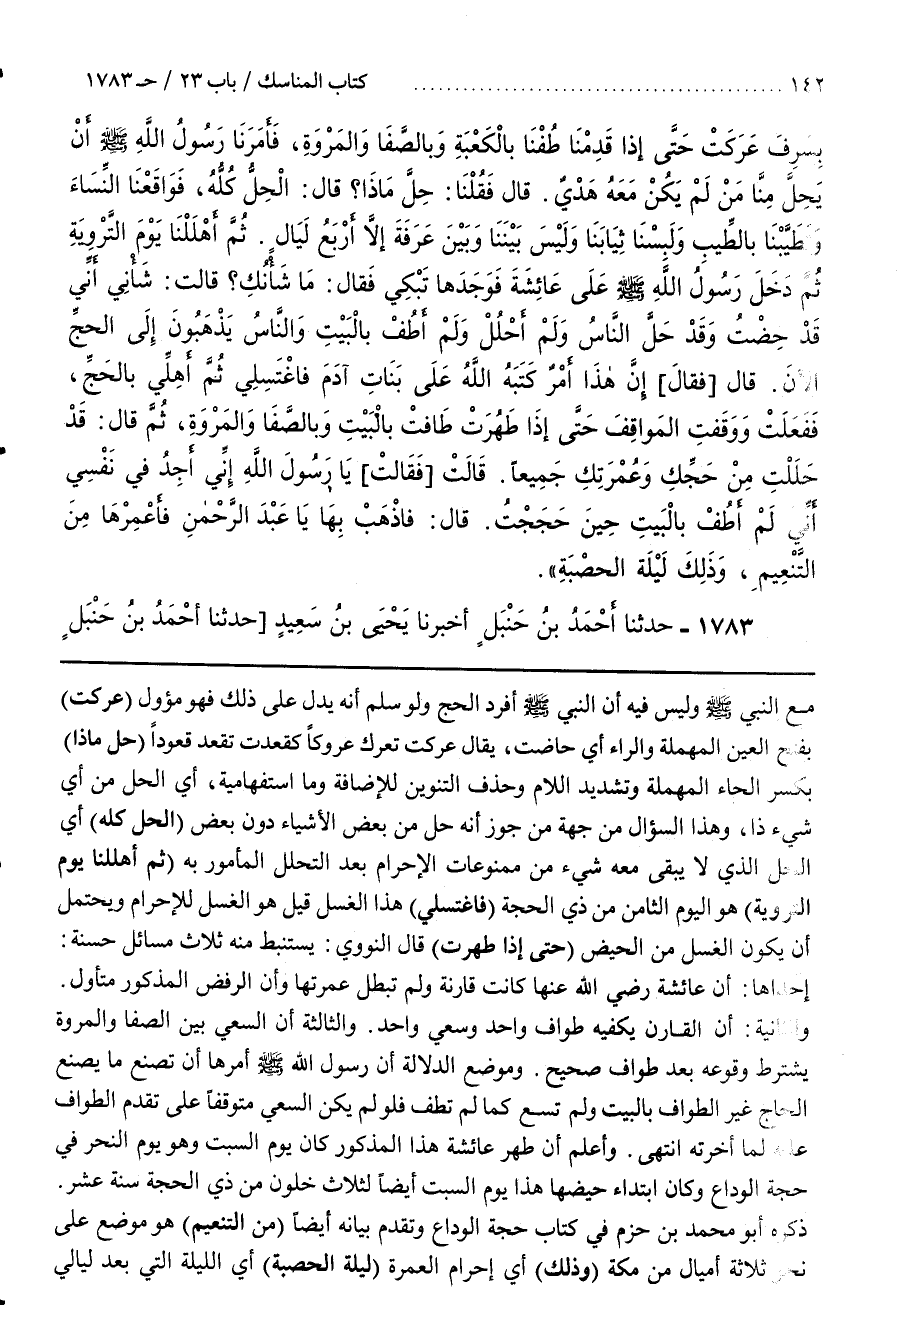 ١٤٢ ........................................ كتاب المناسك / باب ٢٣ / حـ ١٧٨٣
بِسَرِفَ عَرَكَتْ حَتَّى إذا قَدِمْنَا طُفْنَا بالْكَعْبَةِ وَبالصَّفَا وَالمَرْوَةِ، فَأَمَرَنَا رَسُولُ اللَّهِ ﷺ أَنْ
يَحِلَّ مِنَّا مَنْ لَمْ يَكُنْ مَعَهُ هَدْيٌ. قال فَقُلْنَا: حِلَّ مَاذَا؟ قال: الْحِلُّ كُلُّهُ، فَوَاقَعْنَا النِّسَاءَ
وَتَطَيَّبْنَا بالطِّيبِ وَلَبِسْنَا ثِيَابَنَا وَلَيْسَ بَيْنَنَا وَبَيْنَ عَرَفَةَ إلاَّ أَرْبَعُ لَيَالٍ. ثُمَّ أَهْلَلْنَا يَوْمَ التَّرْوِيَةِ
ثُمَّ دَخَلَ رَسُولُ اللَّهِ ﷺ عَلَى عَائِشَةَ فَوَجَدَها تَبْكِي فَقال: مَا شَأْنُكِ؟ قالت: شَأْنِي أَنِّي
قَدْ حِضْتُ وَقَدْ حَلَّ النَّاسُ وَلَمْ أَحْلُلْ وَلَمْ أَطُفْ بالْبَيْتِ وَالنَّاسُ يَذْهَبُونَ إِلَى الحجِّ
الآنَ. قال [فقالَ] إِنَّ هٰذَا أَمْرٌ كَتَبَهُ اللَّهُ عَلَى بَنَاتِ آدَمَ فاغْتَسِلِي ثُمَّ أَهِلِّي بالحَجِّ،
فَفَعَلَتْ وَوَقَفَتِ المَواقِفَ حَتَّى إذَا طَهُرَتْ طَافتْ بالْبَيْتِ وَبالصَّفَا وَالمَرْوَةِ، ثُمَّ قال: قَدْ
حَلَلْتِ مِنْ حَجِّكِ وَعُمْرَتِكِ جَمِيعاً. قَالَتْ [فَقَالتْ] يَا رَسُولَ اللَّهِ إنِّي أَجِدُ في نَفْسِي
أَنِّي لَمْ أَطُفْ بالْبَيتِ حِينَ حَجَجْتُ. قال: فاذْهَبْ بِهَا يَا عَبْدَ الرَّحْمٰنِ فأَعْمِرْهَا مِنَ
التَّنْعِيمِ، وَذَلِكَ لَيْلَةَ الحصْبَةِ».
١٧٨٣ ـ حدثنا أَحْمَدُ بنُ حَنْبَلٍ أخبرنا يَحْيَى بنُ سَعِيدٍ [حدثنا أحْمَدُ بنُ حَنْبَلٍ
مع النبي ﷺ وليس فيه أن النبي ﷺ أفرد الحج ولو سلم أنه يدل على ذلك فهو مؤول (عركت)
بفتح العين المهملة والراء أي حاضت، يقال عركت تعرك عروكاً كقعدت تقعد قعوداً (حل ماذا)
بكسر الحاء المهملة وتشديد اللام وحذف التنوين للإضافة وما استفهامية، أي الحل من أي
شيء ذا، وهذا السؤال من جهة من جوز أنه حل من بعض الأشياء دون بعض (الحل كله) أي
الحل الذي لا يبقى معه شيء من ممنوعات الإحرام بعد التحلل المأمور به (ثم أهللنا يوم
التروية) هو اليوم الثامن من ذي الحجة (فاغتسلي) هذا الغسل قيل هو الغسل للإحرام ويحتمل
أن يكون الغسل من الحيض (حتى إذا طهرت) قال النووي: يستنبط منه ثلاث مسائل حسنة:
إحداها: أن عائشة رضي الله عنها كانت قارنة ولم تبطل عمرتها وأن الرفض المذكور متأول.
والثانية: أن القارن يكفيه طواف واحد وسعي واحد. والثالثة أن السعي بين الصفا والمروة
يشترط وقوعه بعد طواف صحيح. وموضع الدلالة أن رسول الله ﷺ أمرها أن تصنع ما يصنع
الحاج غير الطواف بالبيت ولم تسع كما لم تطف فلو لم يكن السعي متوقفاً على تقدم الطواف
عليه لما أخرته انتهى. وأعلم أن طهر عائشة هذا المذكور كان يوم السبت وهو يوم النحر في
حجة الوداع وكان ابتداء حيضها هذا يوم السبت أيضاً لثلاث خلون من ذي الحجة سنة عشر.
ذكره أبو محمد بن حزم في كتاب حجة الوداع وتقدم بيانه أيضاً (من التنعيم) هو موضع على
نحو ثلاثة أميال من مكة (وذلك) أي إحرام العمرة (ليلة الحصبة) أي الليلة التي بعد ليالي